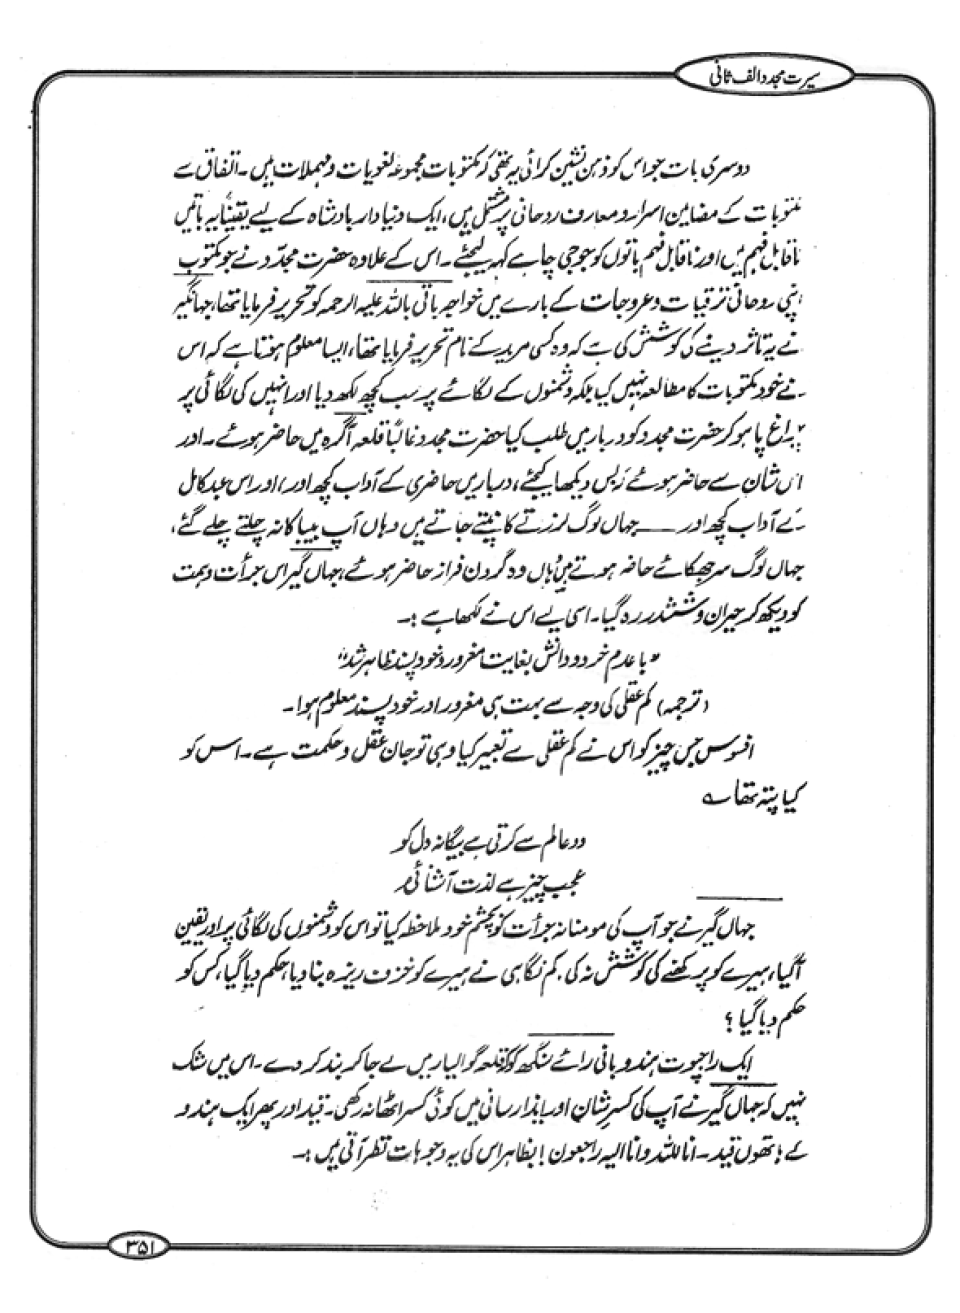 سیرت مجدد الف ثانی
دوسری بات جو اس کو ذہن نشین کرائی یہ تھی کہ مکتوبات مجموعۂ لغویات و مہملات ہیں۔ اتفاق سے
مکتوبات کے مضامین اسرار و معارف روحانی پر مشتمل ہیں، ایک دنیا دار بادشاہ کے لیے یقیناً یہ باتیں
ناقابل فہم ہیں اور ناقابل فہم باتوں کو جو جی چاہے کہہ لیجئے۔ اس کے علاوہ حضرت مجدد نے جو مکتوب
اپنی روحانی ترقیات و عروجات کے بارے میں خواجہ باقی باللہ علیہ الرحمہ کو تحریر فرمایا تھا، جہانگیر
نے یہ تاثر دینے کی کوشش کی ہے کہ وہ کسی مرید کے نام تحریر فرمایا تھا، ایسا معلوم ہوتا ہے کہ اس
نے خود مکتوبات کا مطالعہ نہیں کیا بلکہ دشمنوں کے لگائے پر سب کچھ لکھ دیا اور انہیں کی لگائی پر
چراغ پا ہو کر حضرت مجدد کو دربار میں طلب کیا حضرت مجدد غالباً قلعہ آگرہ میں حاضر ہوئے۔ اور
اس شان سے حاضر ہوئے کہ بس دیکھا کیجئے، دربار میں حاضری کے آداب کچھ اور، اور اس عبد کامل
کے آداب کچھ اور ـــــ جہاں لوگ لرزتے کانپتے جاتے ہیں وہاں آپ بیباکانہ چلتے چلے گئے،
جہاں لوگ سر جھکائے حاضر ہوتے ہیں وہاں وہ گردن فراز حاضر ہوئے، جہاں گیر اس جرأت و ہمت
کو دیکھ کر حیران و ششدر رہ گیا۔ اسی لیے اس نے لکھا ہے :۔
"با عدم خرد و دانش بغایت مغرور و خود پسند ظاہر شد"
(ترجمہ) کم عقلی کی وجہ سے بہت ہی مغرور اور خود پسند معلوم ہوا۔
افسوس جس چیز کو اس نے کم عقلی سے تعبیر کیا وہی تو جان عقل و حکمت ہے۔ اس کو
کیا پتہ تھا ؎
دو عالم سے کرتی ہے بیگانہ دل کو
عجب چیز ہے لذت آشنائی
جہاں گیر نے جو آپ کی مومنانہ جرأت کو بچشم خود ملاحظہ کیا تو اس کو دشمنوں کی لگائی پر اور یقین
آگیا، ہیرے کو پرکھنے کی کوشش نہ کی، کم نگاہی نے ہیرے کو خزف ریزہ بنا دیا، حکم دیا گیا، کس کو
حکم دیا گیا ؟
ایک راجپوت ہندو بانی رائے سنگھ کو کہ قلعہ گوالیار میں لے جا کر بند کر دے۔ اس میں شک
نہیں کہ جہاں گیر نے آپ کی کسرِ شان اور ایذا رسانی میں کوئی کسر اٹھا نہ رکھی۔ قید اور پھر ایک ہندو
کے ہاتھوں قید۔ انا للہ وانا الیہ راجعون ! بظاہر اس کی یہ وجوہات نظر آتی ہیں :۔
۳۵۱